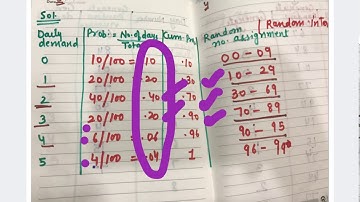 Sol:
Daily demand Prob = No. of days / Total Cum. Pro Random no. assignment Random Int
0 10/100 = .10 .10 00 - 09
1 20/100 = .20 .30 10 - 29
2 40/100 = .40 .70 30 - 69
3 20/100 = .20 .90 70 - 89
4 6/100 = .06 .96 90 - 95
5 4/100 = .04 1 96 - 99